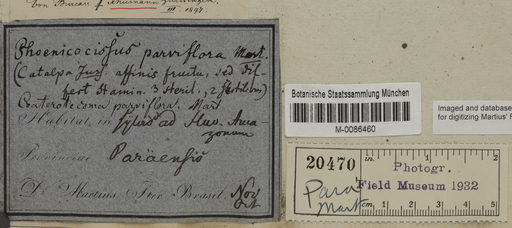 von Bureau & Schumann
III 1897.
Phoenicocissus parviflora Mart.
(Catalpa Juss. affinis fructu, sed dif-
fert Stamin. 3 steril., 2 fertilibus)
parviflora. Mart
Habitat in sylvis ad fluv. Ama
zonum
Provinciae Paraënsis
D. Martius Iter Brasil. Nov
Oct
Botanische Staatssammlung München
M-0086460
Imaged and database
for digitizing Martius' F
20470
Photogr.
Field Museum 1932
Para
Mart
in. 1 2
cm 1 2 3 4 5